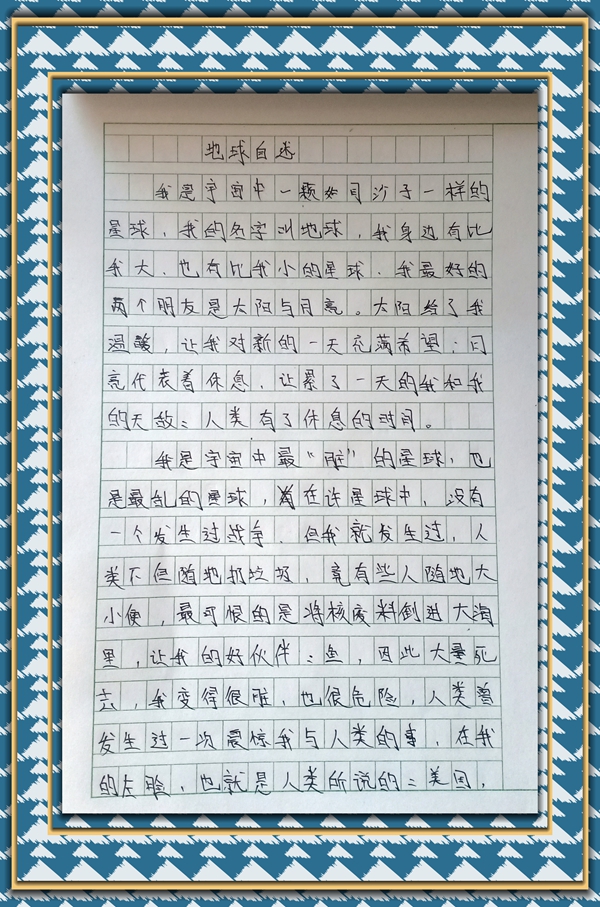 地球自述
我是宇宙中一颗如同沙子一样的
星球,我的名字叫地球,我身边有比
我大,也有比我小的星球,我最好的
两个朋友是太阳与月亮。太阳给了我
温暖,让我对新的一天充满希望;月
亮代表着休息,让累了一天的我和我
的天敌:人类有了休息的时间。
我是宇宙中最“脏”的星球,也
是最乱的星球,在许星球中,没有
一个发生过战争,但我就发生过,人
类不但随地扔垃圾,竟有些人随地大
小便,最可恨的是将核废料倒进大海
里,让我的好伙伴:鱼,因此大量死
去,我变得很脏,也很危险,人类曾
发生过一次震惊我与人类的事,在我
的左脸,也就是人类所说的:美国,